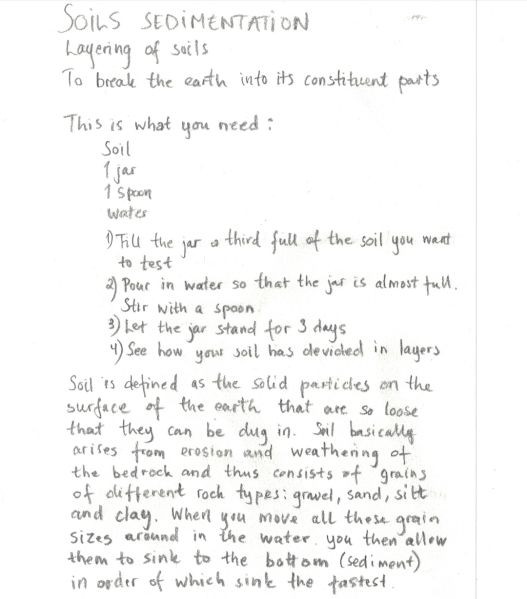 SOILS SEDIMENTATION
Layering of soils
To break the earth into its constituent parts
This is what you need:
Soil
1 jar
1 spoon
water
1) Fill the jar a third full of the soil you want
to test
2) Pour in water so that the jar is almost full.
Stir with a spoon
3) Let the jar stand for 3 days
4) See how your soil has devided in layers
Soil is defined as the solid particles on the
surface of the earth that are so loose
that they can be dug in. Soil basically
arises from erosion and weathering of
the bedrock and thus consists of grains
of different rock types: gravel, sand, silt
and clay. When you move all these grain
sizes around in the water you then allow
them to sink to the bottom (sediment)
in order of which sink the fastest.